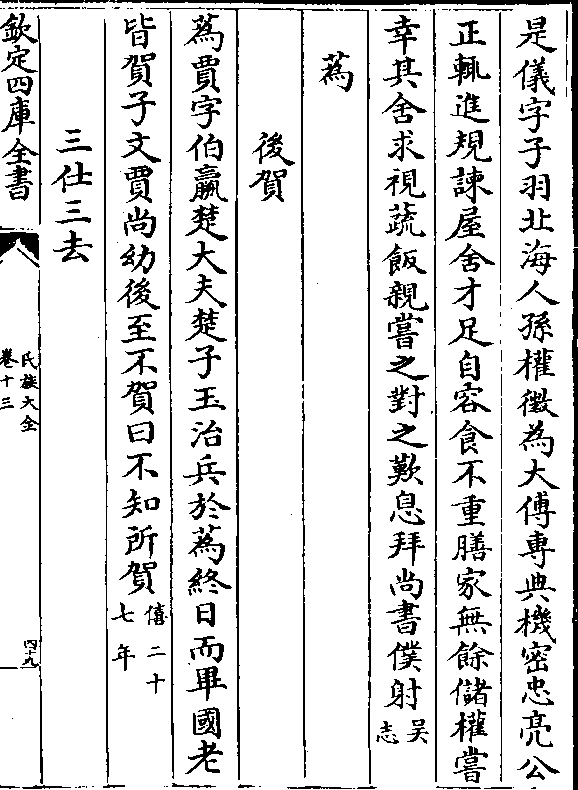 是儀字子羽北海人孫權徵為大傅專典機密忠亮公
正輒進規諫屋舍才足自容食不重膳家無餘儲權嘗
幸其舍求視蔬飯親嘗之對之歎息拜尚書僕射吳志
蒍
後賀
蒍賈字伯嬴楚大夫楚子玉治兵於蒍終日而畢國老
皆賀子文賈尚幼後至不賀曰不知所賀僖二十七年
三仕三去
欽定四庫全書
氏族大全
卷十三
四十九